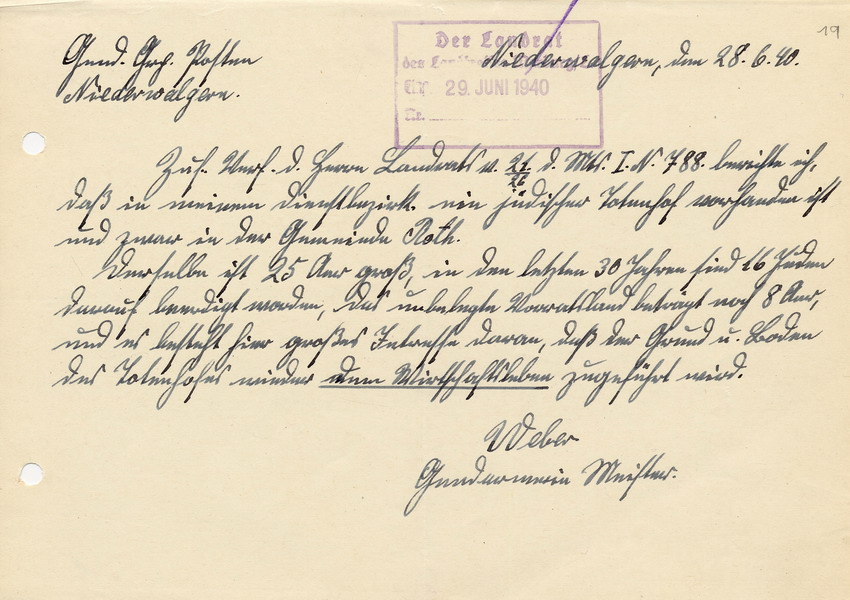 19
Gend. Grp. Posten
Niederwalgern.
Der Landrat
des Landkreises
Eing. 29. JUNI 1940
Nr.
Niederwalgern, den 28.6.40.
Zuf. Verf. d. Herrn Landrats v. 21/26 d. Mts. I. N. 788. berichte ich,
daß in meinem Dienstbezirk ein jüdischer Totenhof vorhanden ist
und zwar in der Gemeinde Roth.
Derselbe ist 25 Aar groß, in den letzten 30 Jahren sind 16 Juden
darauf beerdigt worden, das unbelegte Vorratsland beträgt noch 8 Aar,
und es besteht hier großes Intresse daran, daß der Grund u. Boden
des Totenhofes wieder dem Wirtschaftsleben zugeführt wird.
Weber
Gendarmerie Meister.